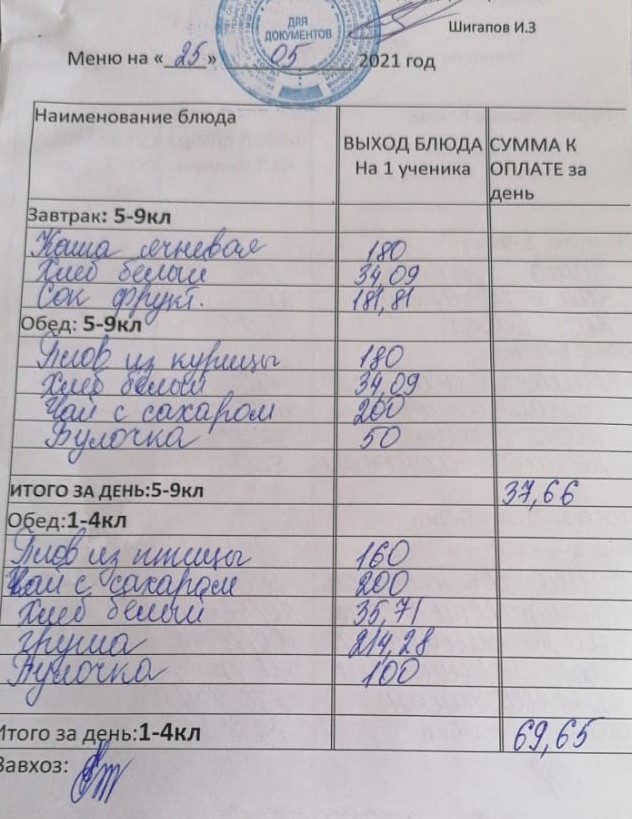 ДЛЯ
ДОКУМЕНТОВ
Шигапов И.З
Меню на « 25 » 05 2021 год
Наименование блюда ВЫХОД БЛЮДА На 1 ученика СУММА К ОПЛАТЕ за день
Завтрак: 5-9кл
Каша ячневая 180
Хлеб белый 34,09
Сок фрукт. 181,81
Обед: 5-9кл
Плов из курицы 180
Хлеб белый 34,09
Чай с сахаром 200
Булочка 50
ИТОГО ЗА ДЕНЬ:5-9кл 37,66
Обед:1-4кл
Плов из птицы 160
Чай с сахаром 200
Хлеб белый 35,71
груша 214,28
Булочка 100
Итого за день:1-4кл 69,65
Завхоз: